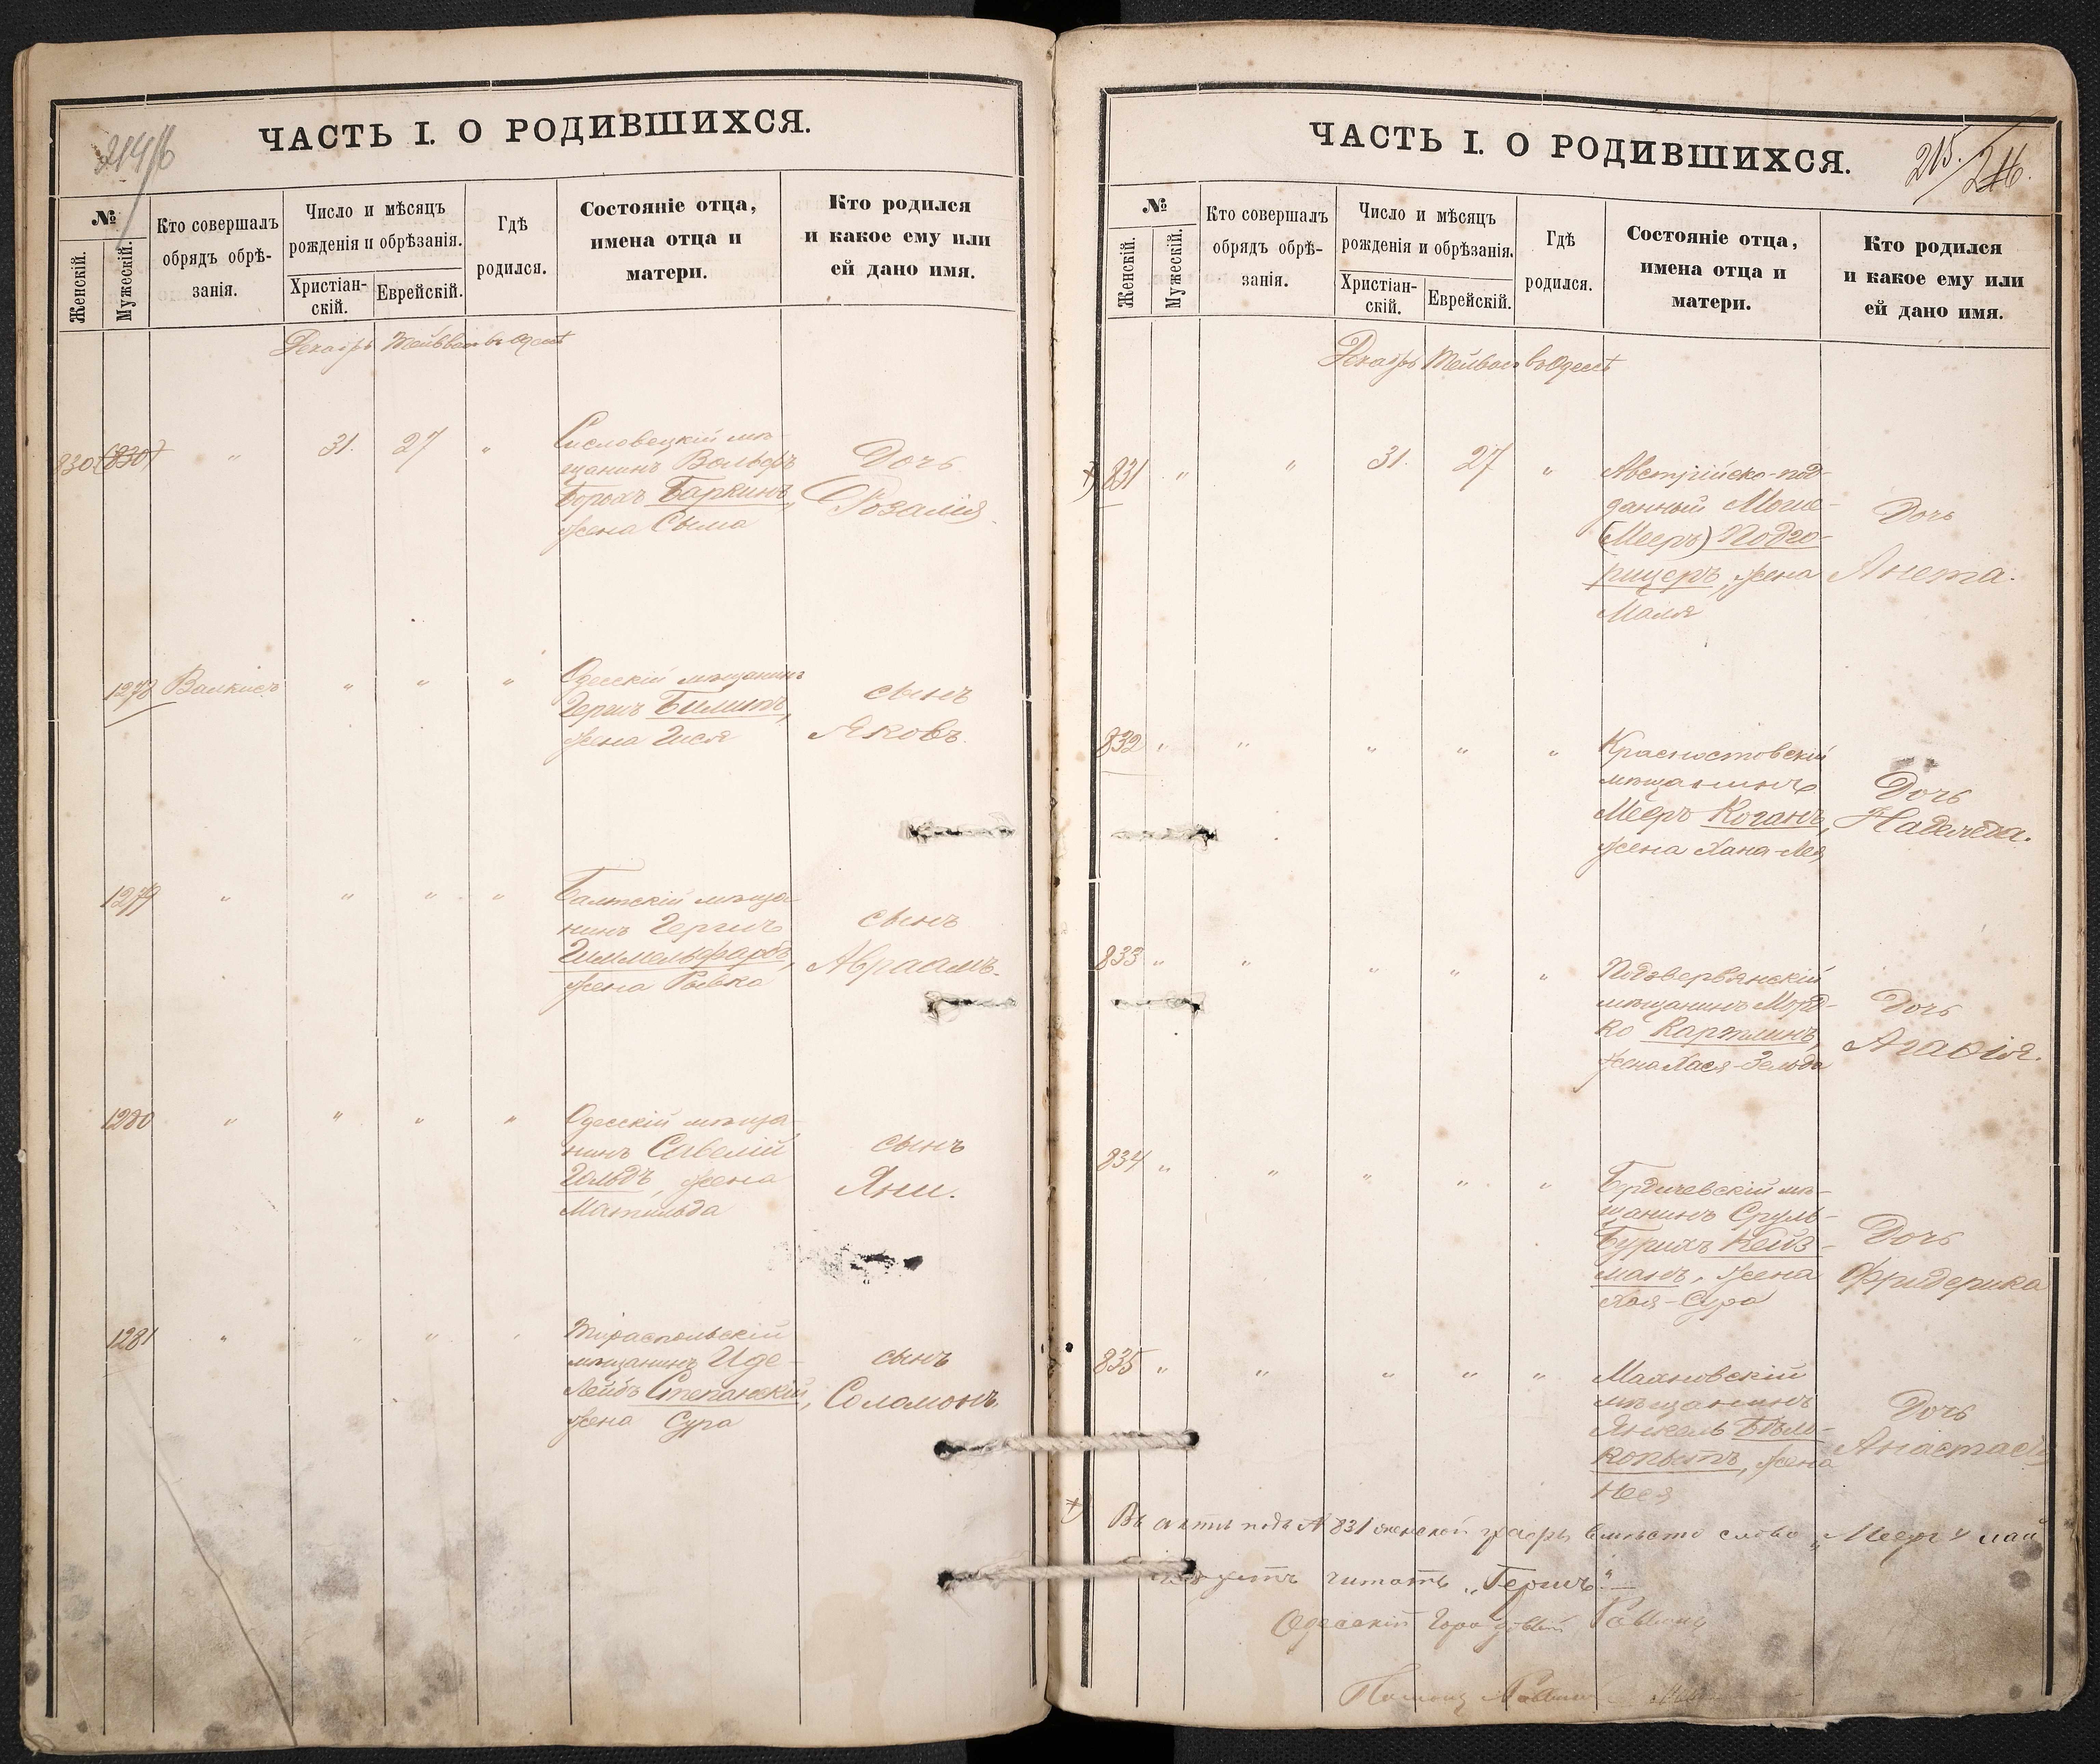 ЧАСТЬ I. О РОДИВШИХСЯ.
№
Женскій.
Мужескій.
Кто совершалъ
обрядъ обрѣ-
занія.
Число и мѣсяцъ
рожденія и обрѣзанія.
Христіан-
скій.
Еврейскій.
Гдѣ
родился.
Состояніе отца,
имена отца и
матери.
Кто родился
и какое ему или
ей дано имя.
Декабрь Тейвасъ въ Одессѣ
830 (830) " 31. 27 "
мѣ-
щанинъ Вольфъ
Борохъ Баркинъ,
жена Сыма
Дочь
Розалія
1278 " " "
Одесскій мѣщанинъ
Гершъ
жена Гися
сынъ
Яковъ.
1279 " " " "
Балтскій мѣща-
нинъ Гершъ
Гиммельфарбъ,
жена Рывка
сынъ
Авраамъ.
1280 " " " "
Одесскій мѣща-
нинъ Савелій
Гольдъ, жена
Матильда
сынъ
Яни.
1281 " " " "
Тираспольскій
мѣщанинъ Иде-
Лейбъ Степанскій,
жена Сура
сынъ
Соломонъ.
ЧАСТЬ I. О РОДИВШИХСЯ.
215.
№
Женскій.
Мужескій.
Кто совершалъ
обрядъ обрѣ-
занія.
Число и мѣсяцъ
рожденія и обрѣзанія.
Христіан-
скій.
Еврейскій.
Гдѣ
родился.
Состояніе отца,
имена отца и
матери.
Кто родился
и какое ему или
ей дано имя.
Декабрь Тейвасъ въ Одессѣ
+) 831 " " 31. 27 "
Австрійско-под-
данный Моше-
(Мееръ) Подго-
рицеръ, жена
Маля
Дочь
Анета.
832 " " " " "
Красноставскій
мѣщанинъ
Мееръ Коганъ,
жена Хана-Лея
Дочь
Надежда.
833 " " " " "
мѣщанинъ Морд-
ко
жена Хася-Зельда
Дочь
Агафія.
834 " " " " "
Бердичевскій мѣ-
щанинъ Сруль-
Кейз-
манъ, жена
Хая-Сура
Дочь
Фридерика
835 " " " " "
Махновскій
мѣщанинъ
Янкель Бѣло-
копытъ, жена
Нея
Дочь
Анастасія
+) Въ актѣ подъ № 831 женской графы вмѣсто слово „Мееръ"
читать „Гершъ".—
Одесскій Городовой Раввинъ